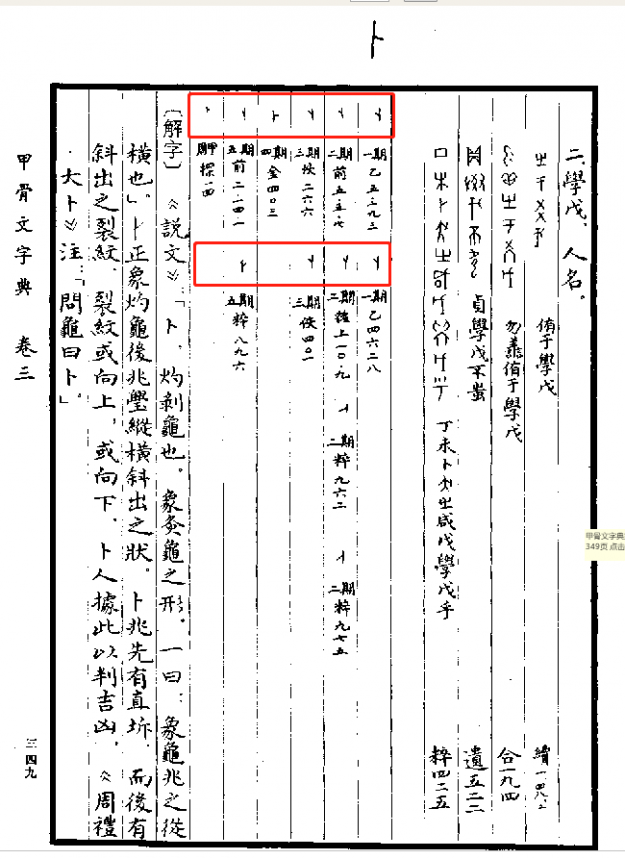 卜
二、學戊、人名。
侑于學戊 續一·四八·二
勿𦍩侑于學戊 合一九四
貞學戊不蚩 遺五二二
丁未卜 㞢咸戊學戊乎 粹四二五
一期 乙五三九三
一期 乙四六二八
二期 前五·五·七
二期 上一〇·九
二期 粹九六二
二期 粹九七五
三期 佚二六六
三期 佚四〇一
四期 金四〇三
五期 前二·一四·一
五期 粹八九六
周甲 探一四
〔解字〕《説文》：「卜，灼剝龜也。象灸龜之形。一曰：象龜兆之從
橫也」。卜正象灼龜後兆璺縱橫斜出之狀。卜兆先有直坼，而後有
斜出之裂紋，裂紋或向上，或向下，卜人據此以判吉凶，《周禮
·大卜》注：「問龜曰卜」。
甲骨文字典 卷三
三四九
甲骨文字典
349页 点击